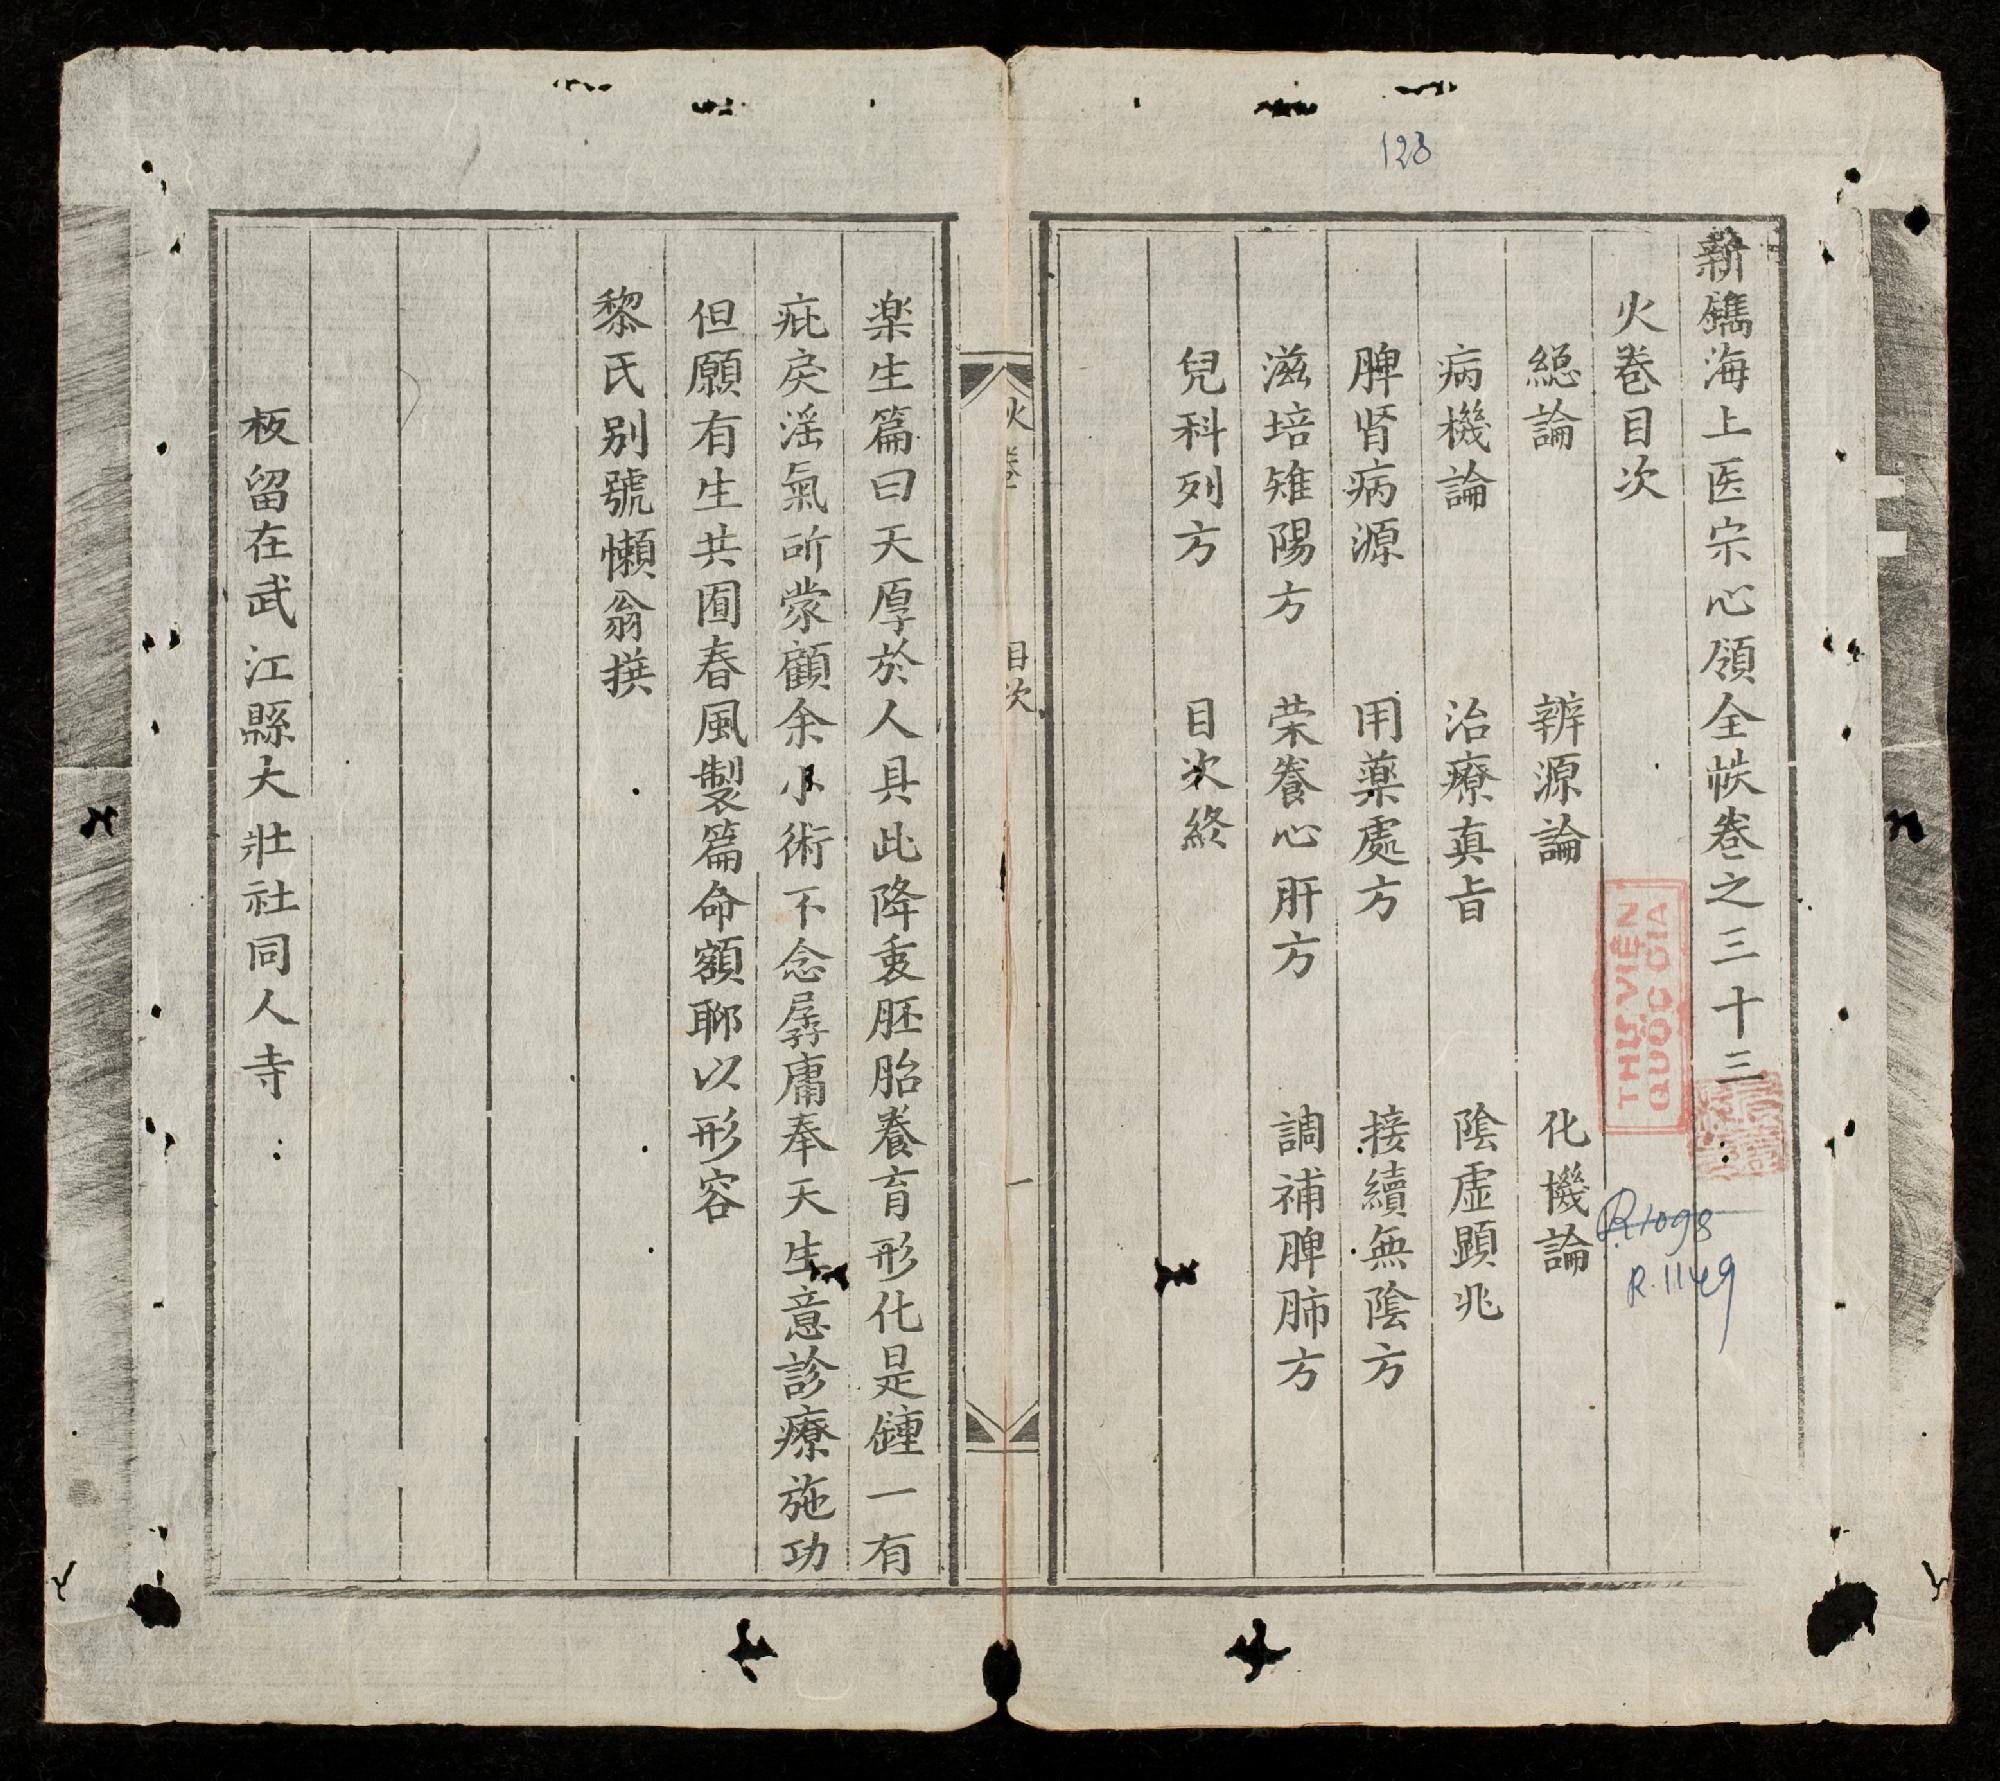 123
新鐫海上医宗心領全帙卷之三十三
火卷目次
総論 辨源論 化機論
病機論 治療真旨 陰虛顕兆
脾肾病源 用藥處方 接續無陰方
滋培雉陽方 荣養心肝方 調補脾肺方
兒科列方 目次終
THƯ VIỆN
QUỐC GIA
R1098
R.1149
火卷 目次 一
楽生篇曰天厚於人具此降衷胚胎養育形化是鍾一有
疵戾滛氣所蒙顧余小術不念孱庸奉天生意診療施功
但願有生共囿春風製篇命額聊以形容
黎氏别號懶翁撰
板留在武江縣大壯社同人寺